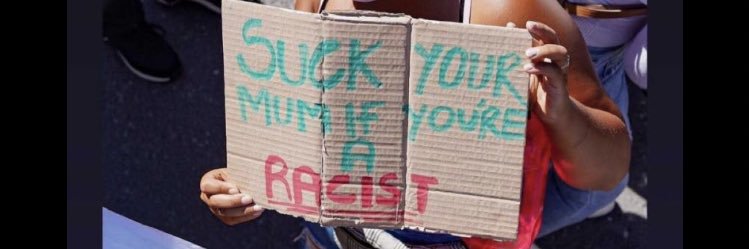 SUCK YOUR
MUM IF YOU'RE
A
RACIST